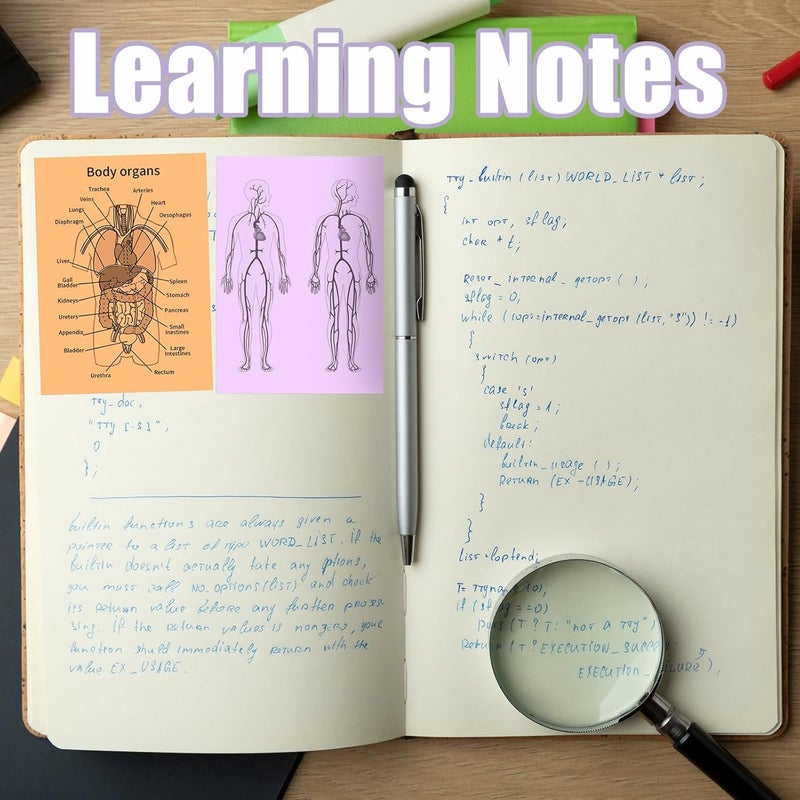 Learning Notes
Body organs
Trachea
Arteries
Veins
Heart
Lungs
Oesophagus
Diaphragm
Liver
Gall
Bladder
Spleen
Kidneys
Stomach
Ureters
Pancreas
Appendix
Small
Inestines
Bladder
Large
Intestines
Urethra
Rectum
tty_doc,
"TTY [-s]",
0
};
builtin functions are always given a
pointer to a list of type WORD_LIST. if the
builtin doesn't actually take any options,
you must call no_options(list) and check
its return value before any further proces-
sing. if the return values is nonzero, your
function should immediately return with the
value EX_USAGE.
tty_builtin (list) WORLD_LIST * list;
{
int opt, sflag;
char * t;
reset_internal_getopt ( );
sflag = 0;
while ((opt=internal_getopt (list,"s")) != -1)
{
switch (opt)
{
case 's'
sflag = 1;
break;
default:
builtin_usage ( );
return (EX-USAGE);
}
}
list = loptend;
(0);
if (sflag ==0)
puts (t ? t: "not a tty")
return (t ? EXECUTION_SUCCESS